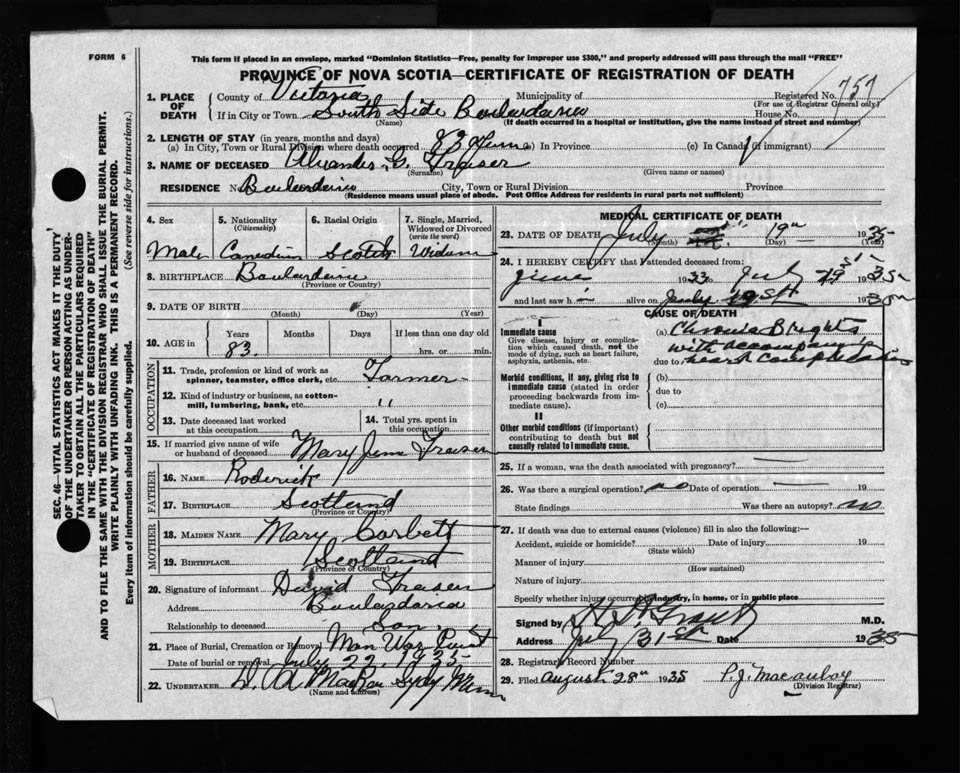 FORM 6
This form if placed in an envelope, marked "Dominion Statistics—Free, penalty for improper use $300," and properly addressed will pass through the mail "FREE"
PROVINCE OF NOVA SCOTIA—CERTIFICATE OF REGISTRATION OF DEATH
SEC. 46—VITAL STATISTICS ACT MAKES IT THE DUTY
OF THE UNDERTAKER OR PERSON ACTING AS UNDER-
TAKER TO OBTAIN ALL THE PARTICULARS REQUIRED
IN THE "CERTIFICATE OF REGISTRATION OF DEATH"
AND TO FILE THE SAME WITH THE DIVISION REGISTRAR WHO SHALL ISSUE THE BURIAL PERMIT.
WRITE PLAINLY WITH UNFADING INK. THIS IS A PERMANENT RECORD.
Every item of information should be carefully supplied. (See reverse side for instructions.)
1. PLACE OF DEATH County of Victoria Municipality of Registered No. 757
(For use of Registrar General only)
If in City or Town South Side Boulardarie House No.
(Name) (If death occurred in a hospital or institution, give the name instead of street and number)
2. LENGTH OF STAY (in years, months and days)
(a) In City, Town or Rural Division where death occurred 83 (b) In Province (c) In Canada (if immigrant)
3. NAME OF DECEASED G. Fraser
(Surname) (Given name or names)
RESIDENCE No. Boulardarie City, Town or Rural Division Province
(Residence means usual place of abode. Post Office Address for residents in rural parts not sufficient)
4. Sex 5. Nationality (Citizenship) 6. Racial Origin 7. Single, Married, Widowed or Divorced (write the word)
Male Canadian Scotch
8. BIRTHPLACE Boulardarie
(Province or Country)
9. DATE OF BIRTH
(Month) (Day) (Year)
10. AGE in Years Months Days If less than one day old
83 hrs. or min.
OCCUPATION
11. Trade, profession or kind of work as spinner, teamster, office clerk, etc. Farmer
12. Kind of industry or business, as cotton-mill, lumbering, bank, etc. "
13. Date deceased last worked at this occupation 14. Total yrs. spent in this occupation
15. If married give name of wife or husband of deceased Mary Jane Fraser
FATHER
16. NAME Roderick
17. BIRTHPLACE Scotland
(Province or Country)
MOTHER
18. MAIDEN NAME Mary Corbett
19. BIRTHPLACE Scotland
(Province or Country)
20. Signature of informant David Fraser
Address Boulardarie
Relationship to deceased Son
21. Place of Burial, Cremation or Removal Man War Point
Date of burial or removal July 22, 1935
22. UNDERTAKER Sydy Mines
(Name and address)
MEDICAL CERTIFICATE OF DEATH
23. DATE OF DEATH July 19th 1935
(Month) (Day) (Year)
24. I HEREBY CERTIFY that I attended deceased from:
June 1933 July 19 1935
and last saw h i alive on July 1935
CAUSE OF DEATH
I
Immediate cause
Give disease, injury or complication which caused death, not the mode of dying, such as heart failure, asphyxia, asthenia, etc.
(a) Chronic Brights
with accompany'g
due to heart complications
Morbid conditions, if any, giving rise to immediate cause (stated in order proceeding backwards from immediate cause).
(b)
due to
(c)
II
Other morbid conditions (if important) contributing to death but not causally related to immediate cause.
25. If a woman, was the death associated with pregnancy?
26. Was there a surgical operation? no Date of operation 19
State findings Was there an autopsy? no
27. If death was due to external causes (violence) fill in also the following:—
Accident, suicide or homicide? Date of injury 19
(State which)
Manner of injury
(How sustained)
Nature of injury
Specify whether injury occurred in industry, in home, or in public place
Signed by Grant M.D.
Address July 31st Date 1935
28. Registrar's Record Number
29. Filed August 28th 1935 P.J. Macaulay
(Division Registrar)